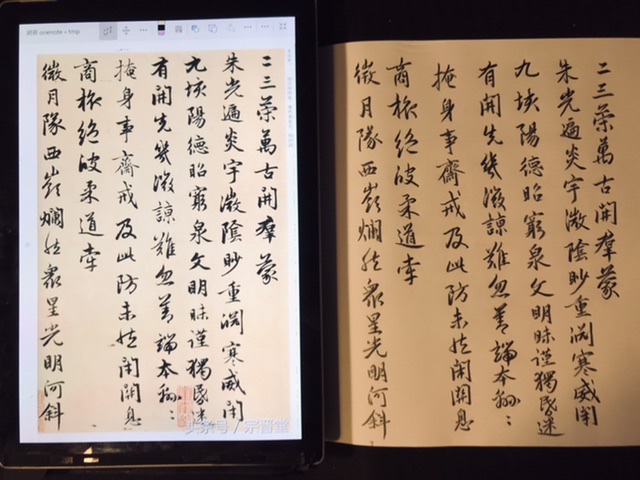 onenote + tmp
二三策萬古開羣蒙
朱光遍炎宇微陰眇重淵寒威閉
九垓陽德昭窮泉文明昧謹獨昏迷
有開先幾微諒難忽善端本綿〻
掩身事齋戒及此防未然閉關息
商旅絕彼柔道牽
微月墮西嶺爛然衆星光明河斜
头条号/宗晋堂
二三策萬古開羣蒙
朱光遍炎宇微陰眇重淵寒威閉
九垓陽德昭窮泉文明昧謹獨昏迷
有開先幾微諒難忽善端本綿〻
掩身事齋戒及此防未然閉關息
商旅絕彼柔道牽
微月墮西嶺爛然衆星光明河斜